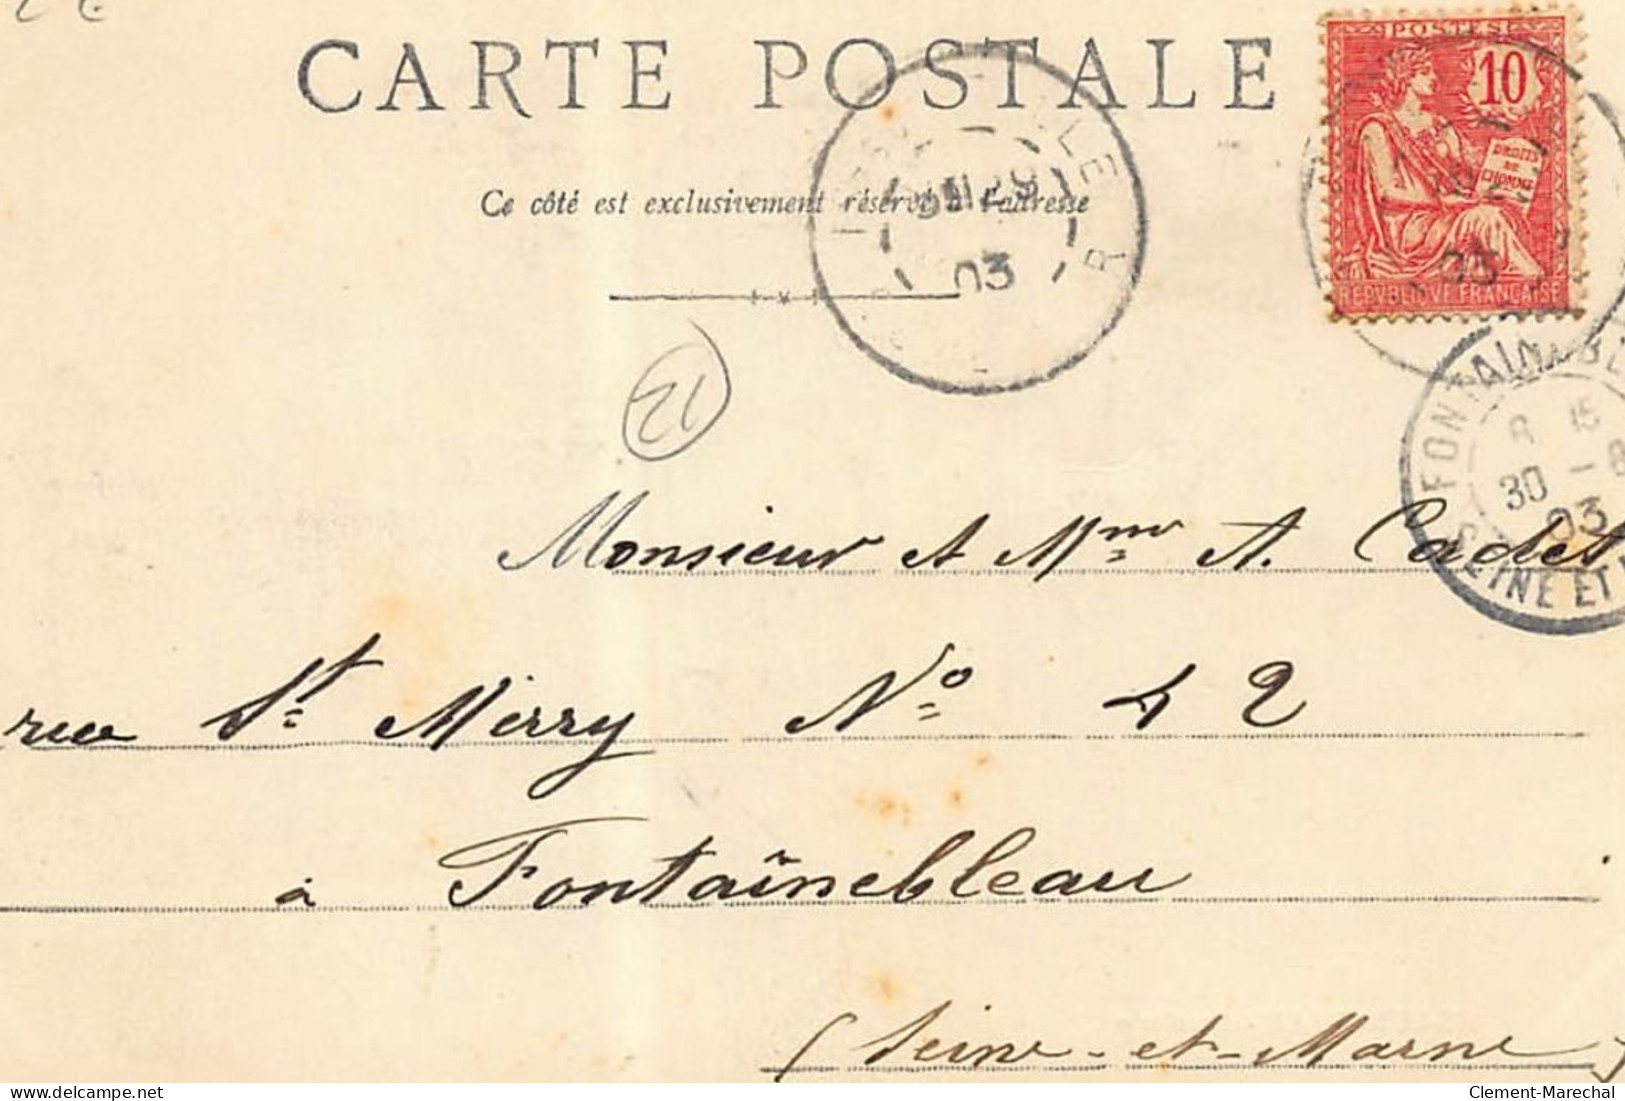 CARTE POSTALE
POSTES
10
DROITS
DE
L'HOMME
REPVBLIQVE FRANÇAISE
Ce côté est exclusivement réservé à l'adresse
03
03
FONTAINEBLEAU
15
30 - 8
03
SEINE ET
12
Monsieur et Mme A. Cadet
rue St Merry No 42
à Fontainebleau
(Seine-et-Marne)
delcampe.net
Clement-Marechal